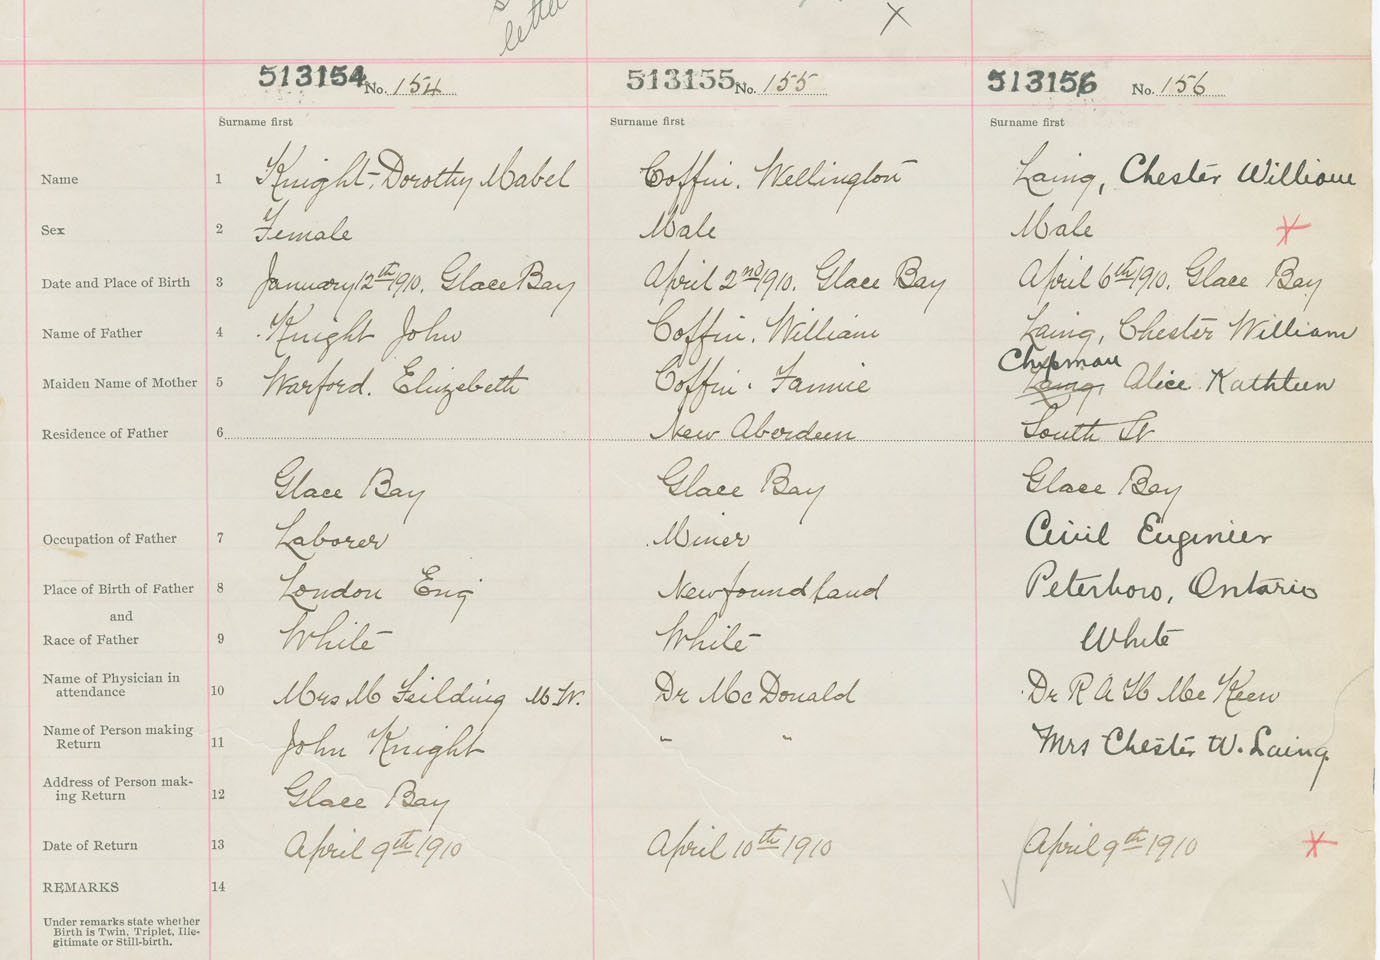 letter
x
513154 No. 154 513155 No. 155 513156 No. 156
Surname first Surname first Surname first
Name 1 Knight, Dorothy Mabel Coffin. Wellington Laing, Chester William
Sex 2 Female Male Male x
Date and Place of Birth 3 January 12th 1910. Glace Bay April 2nd 1910. Glace Bay April 6th 1910. Glace Bay
Name of Father 4 Knight John Coffin. William Laing, Chester William
Chipman
Maiden Name of Mother 5 Warford. Elizebeth Coffin. Fannie Laing, Alice Kathleen
Residence of Father 6 New Aberdeen South St
Glace Bay Glace Bay Glace Bay
Occupation of Father 7 Laborer Miner Civil Engineer
Place of Birth of Father 8 London Eng Newfoundland Peterboro, Ontario
and
Race of Father 9 White White White
Name of Physician in
attendance 10 Mrs M Feilding M.W. Dr McDonald Dr R A H McKeen
Name of Person making
Return 11 John Knight " " Mrs Chester W. Laing
Address of Person mak-
ing Return 12 Glace Bay
Date of Return 13 April 9th 1910 April 10th 1910 April 9th 1910 x
REMARKS 14
Under remarks state whether
Birth is Twin, Triplet, Ille-
gitimate or Still-birth.